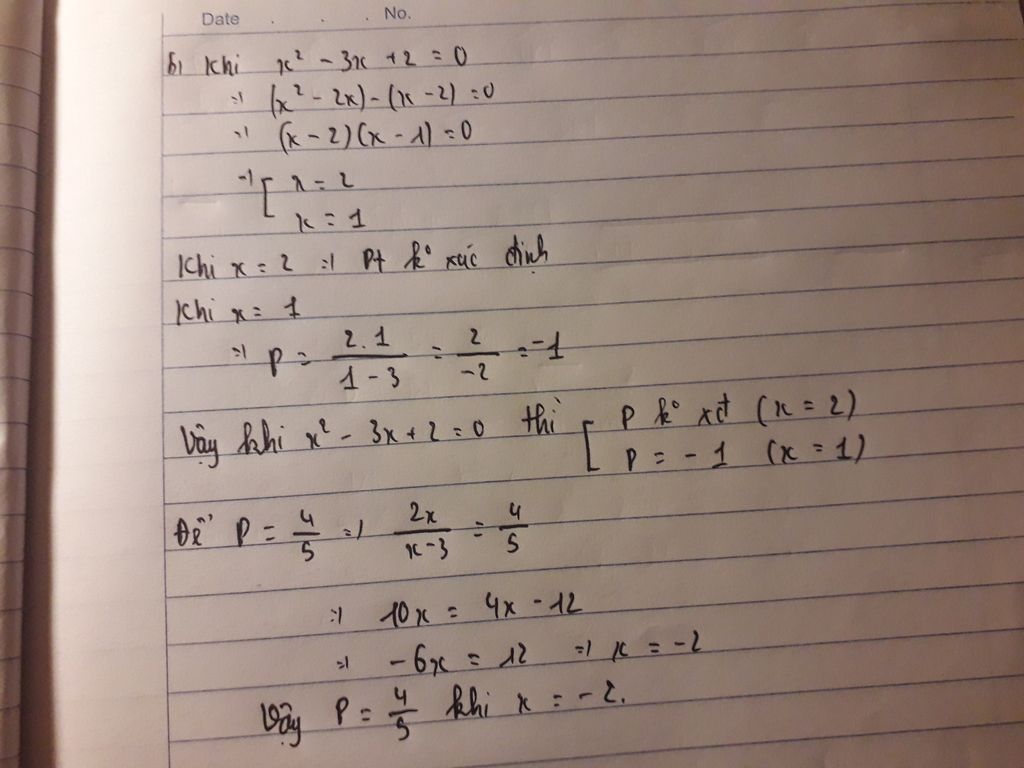 Date . . . No.
b, Khi x² - 3x + 2 = 0
=> (x² - 2x) - (x - 2) = 0
=> (x - 2)(x - 1) = 0
=> [ x = 2
x = 1
Khi x = 2 => Pt k° xác định
Khi x = 1
=> P = 2.1/1-3 = 2/-2 = -1
Vậy khi x² - 3x + 2 = 0 thì [ P k° xđ (x = 2)
P = -1 (x = 1)
Để P = 4/5 => 2x/x-3 = 4/5
=> 10x = 4x - 12
=> -6x = 12 => x = -2
Vậy P = 4/5 khi x = -2.